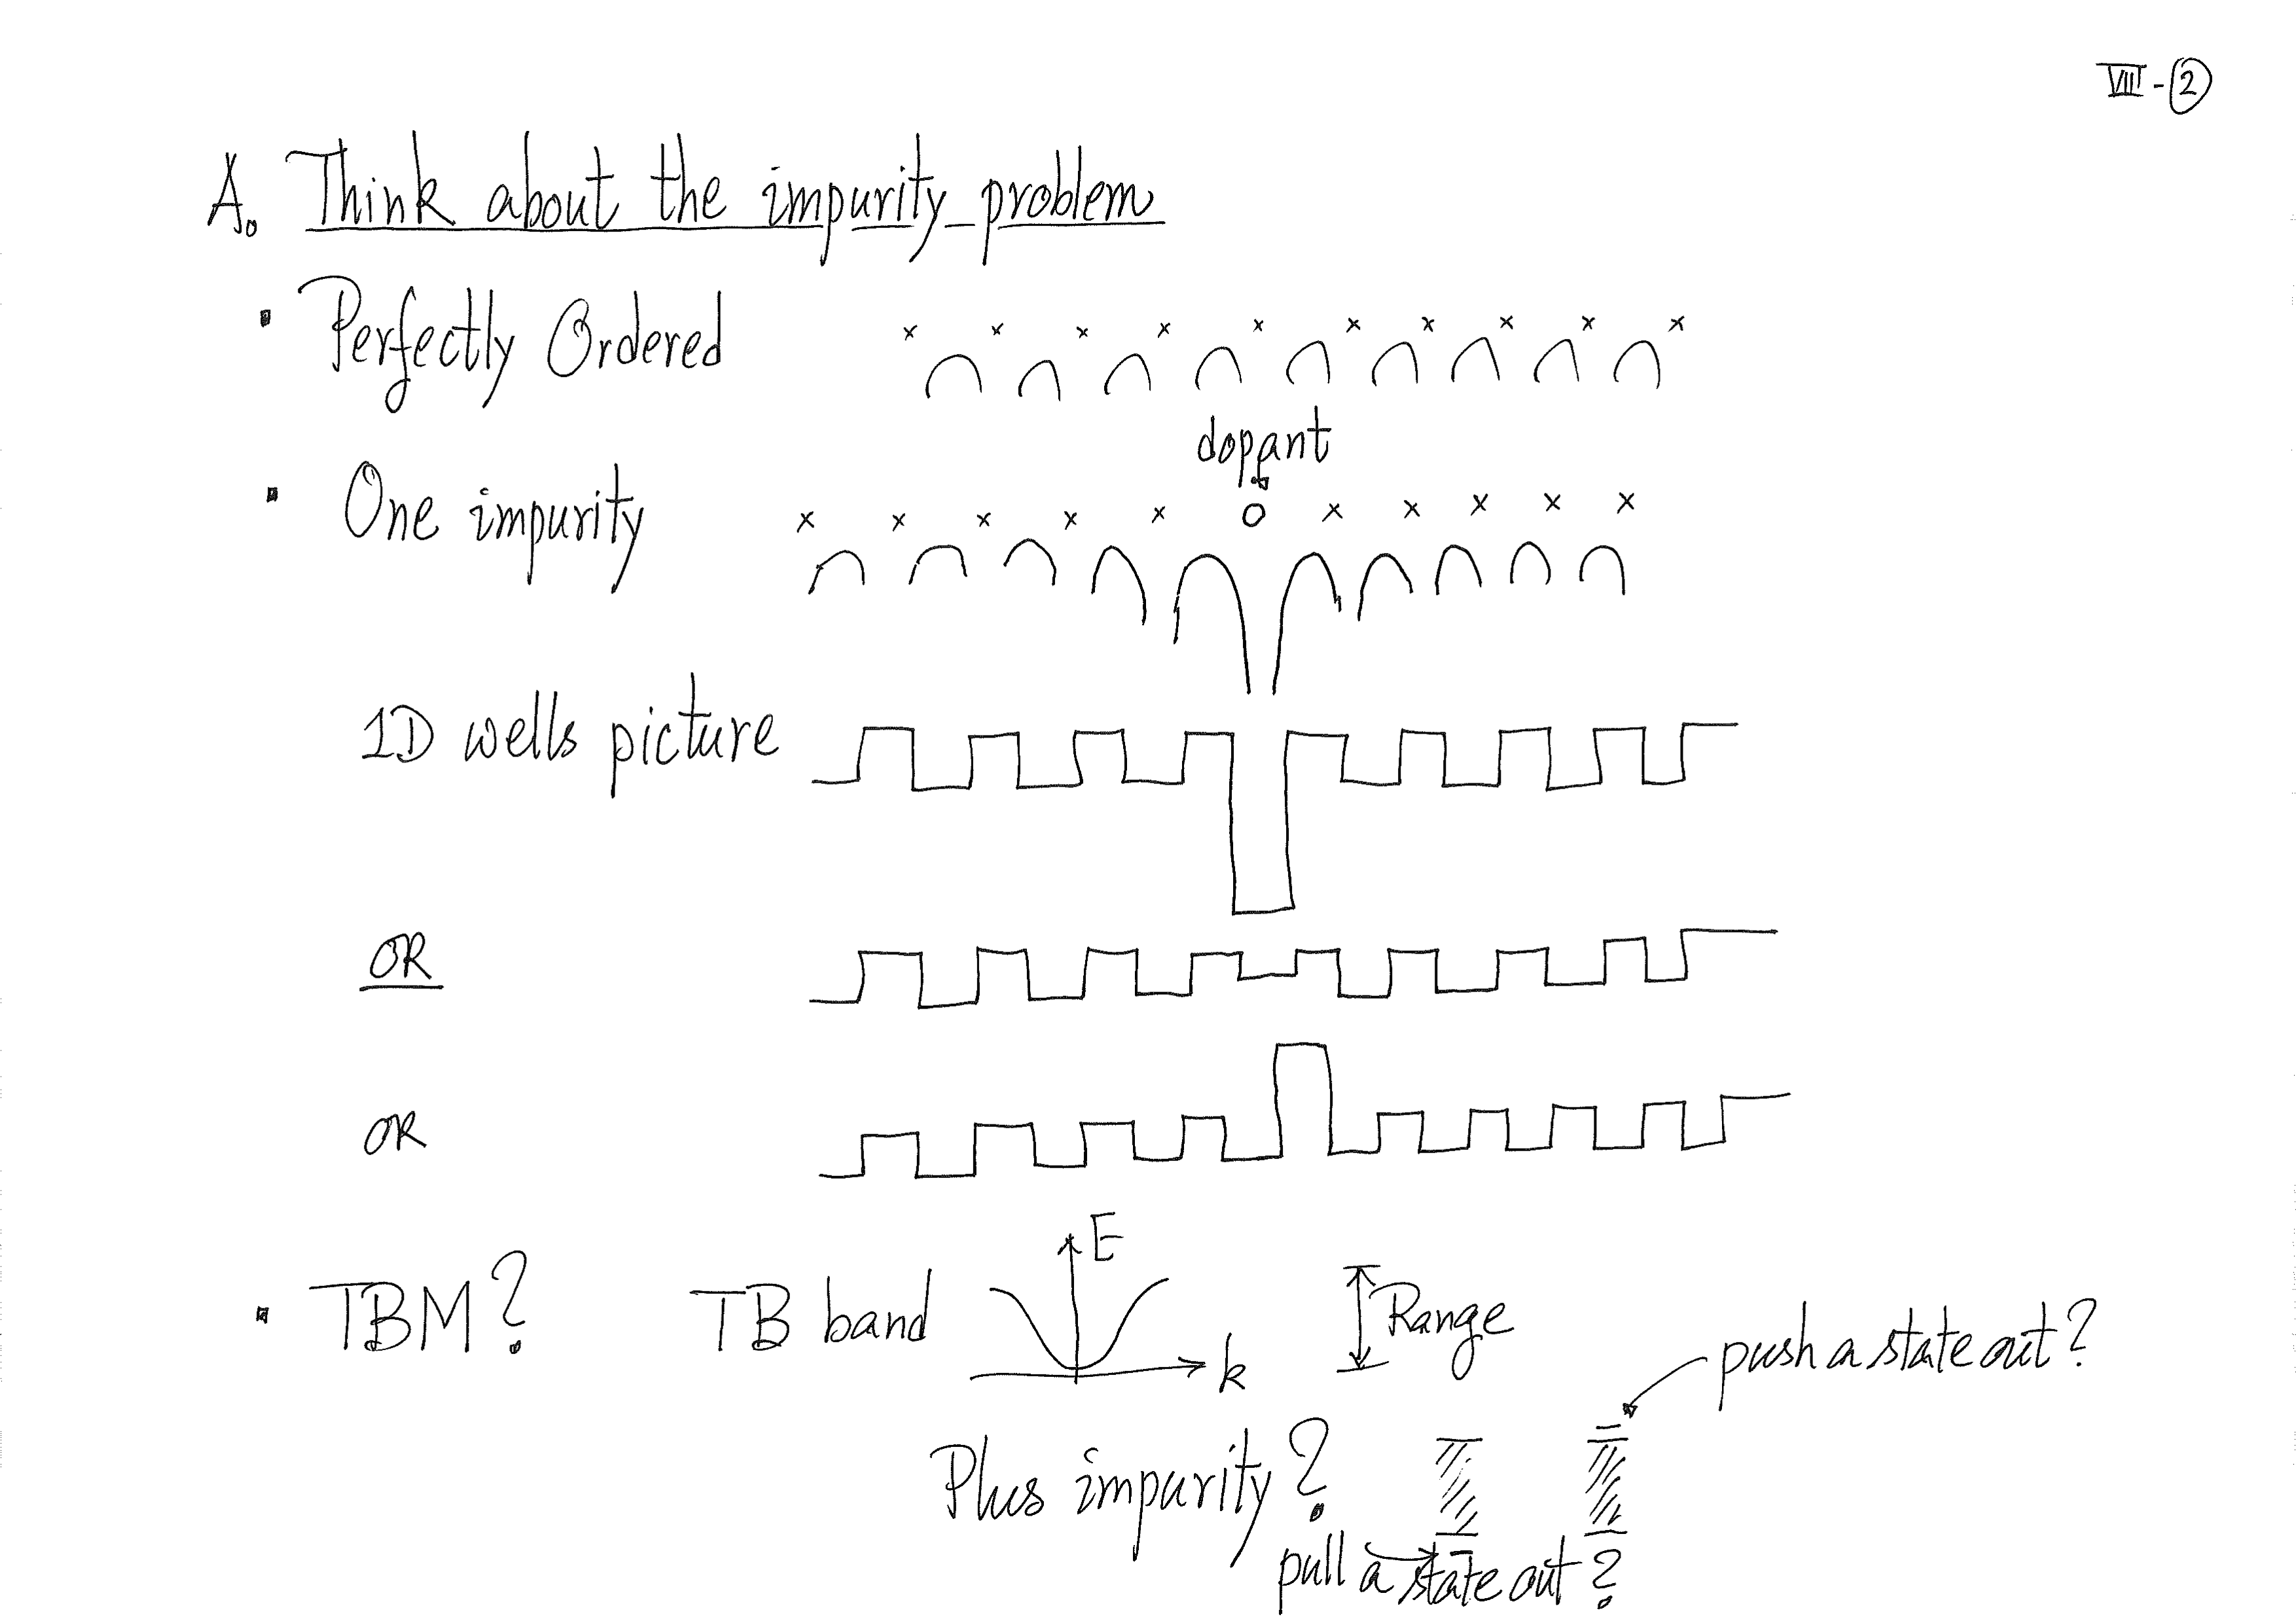 VIII-②
A. Think about the impurity problem
▪ Perfectly Ordered
x x x x x x x x x x
dopant
▪ One impurity
x x x x x o x x x x x
1D wells picture
OR
OR
E
▪ TBM? TB band
k
Range
push a state out?
Plus impurity?
pull a state out?